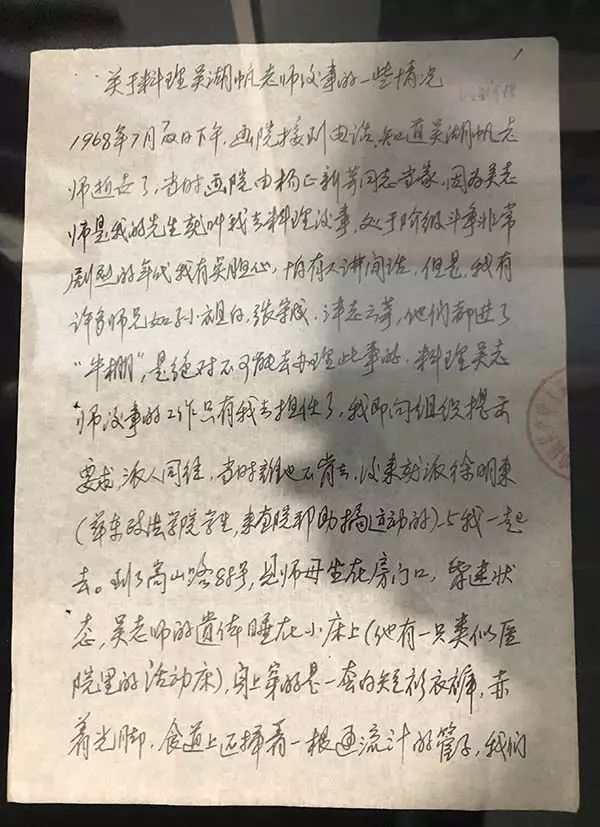 1
关于料理吴湖帆老师后事的一些情况
1968年7月 日下午,画院接到电话,知道吴湖帆老
师逝去了,当时画院由杨正新等同志当家,因为吴老
师是我的先生就叫我去料理后事,处于阶级斗争非常
剧烈的年代我有点担心,怕有人讲闲话,但是,我有
许多师兄如孙祖白,张守成、 等,他们都进了
“牛棚”,是绝对不可能去办理此事的,料理吴老
师后事的工作只有我去担任了,我即向组织提出
要求,派人同往,当时谁也不肯去,后来就派徐明东
(华东政法学院学生,来画院帮助搞运动的)与我一起
去。到了嵩山路88号,见师母坐在房门口,昏迷状
态,吴老师的遗体睡在小床上(他有一只类似医
院里的活动床),身上穿的是一套白短衫衣裤,赤
着光脚,食道上还插着一根通流汁的管子,我们